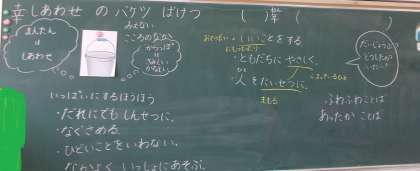 幸しあわせ のバケツ ばけつ
( )年 ( )
まんたん
||
しあわせ
みえない
こころのなか
からっぽ
||
かなしい
いっぱいにするほうほう
・だれにでもしんせつに。
・なぐさめる。
・ひどいことをいわない。
・なかよくいっしょにあそぶ。
・いいことをする
・ともだちにやさしく。
・人をたいせつに。
ひと
まもる
だいじょうぶ
どうしたの
ふわふわことば
あったかことば